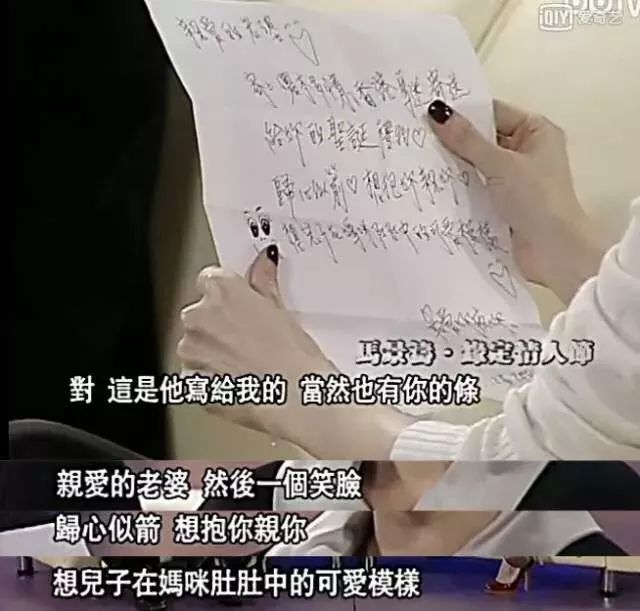 iQIYI 爱奇艺
親愛的老婆♡
香港
給妳的聖誕禮物♡
歸心似箭♡想抱妳親妳♡
想兒子在媽咪肚肚中的可愛模樣
馬景濤·鎖定情人節
對 這是他寫給我的 當然也有你的條
親愛的老婆 然後一個笑臉
歸心似箭 想抱你親你
想兒子在媽咪肚肚中的可愛模樣